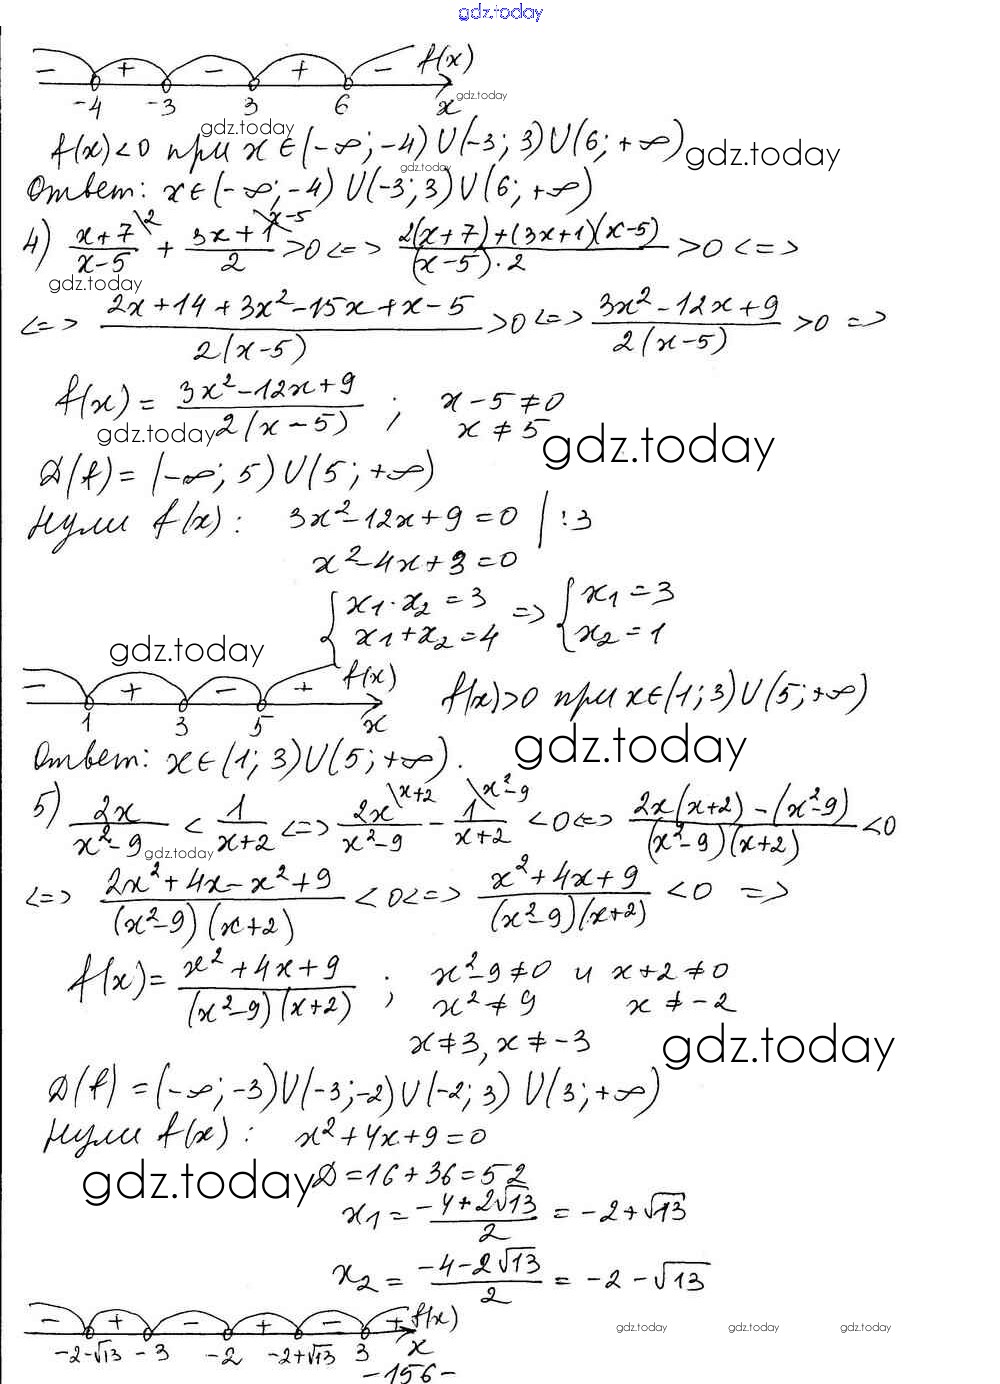 gdz.today
- + - + - f(x)
-4 -3 3 6 x gdz.today
gdz.today
f(x)<0 при x∈(-∞;-4)∪(-3;3)∪(6;+∞) gdz.today
gdz.today
Ответ: x∈(-∞;-4)∪(-3;3)∪(6;+∞)
4) (x+7)/(x-5) \2 + (3x+1)/2 \x-5 >0 <=> (2(x+7)+(3x+1)(x-5))/((x-5)·2) >0 <=>
gdz.today
<=> (2x+14+3x²-15x+x-5)/(2(x-5)) >0 <=> (3x²-12x+9)/(2(x-5)) >0 =>
f(x) = (3x²-12x+9)/(2(x-5)) ; x-5≠0
gdz.today x≠5 gdz.today
D(f) = (-∞;5)∪(5;+∞)
Нули f(x): 3x²-12x+9=0 |:3
x²-4x+3=0
{x1·x2=3 => {x1=3
{x1+x2=4 {x2=1
gdz.today
- + - + f(x) f(x)>0 при x∈(1;3)∪(5;+∞)
1 3 5 x
gdz.today
Ответ: x∈(1;3)∪(5;+∞).
5) 2x/(x²-9) < 1/(x+2) <=> 2x/(x²-9) \x+2 - 1/(x+2) \x²-9 <0 <=> (2x(x+2)-(x²-9))/((x²-9)(x+2)) <0
gdz.today
<=> (2x²+4x-x²+9)/((x²-9)(x+2)) <0 <=> (x²+4x+9)/((x²-9)(x+2)) <0 =>
f(x) = (x²+4x+9)/((x²-9)(x+2)) ; x²-9≠0 и x+2≠0
x²≠9 x≠-2
x≠3, x≠-3 gdz.today
D(f) = (-∞;-3)∪(-3;-2)∪(-2;3)∪(3;+∞)
Нули f(x): x²+4x+9=0
gdz.today D=16+36=52
x1 = (-4+2√13)/2 = -2+√13
x2 = (-4-2√13)/2 = -2-√13
- + - + - + f(x)
-2-√13 -3 -2 -2+√13 3 x
gdz.today gdz.today gdz.today
-156-